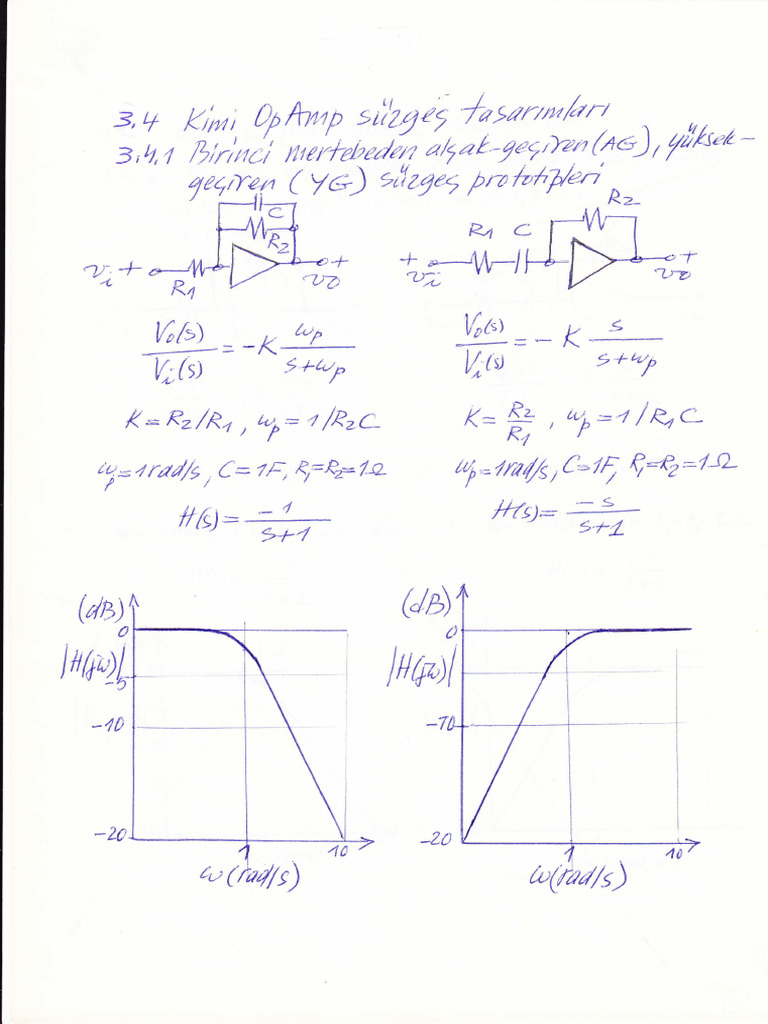 3.4 Kimi OpAmp süzgeç tasarımları
3.4.1 Birinci mertebeden alçak-geçiren (AG), yüksek-
geçiren (YG) süzgeç prototipleri
C
R2
R1
vi +
+
vo
R2
R1 C
+
vi
+
vo
Vo(s)/Vi(s) = -K ωp/(s+ωp)
Vo(s)/Vi(s) = -K s/(s+ωp)
K=R2/R1, ωp=1/R2C
K=R2/R1, ωp=1/R1C
ωp=1rad/s, C=1F, R1=R2=1Ω
ωp=1rad/s, C=1F, R1=R2=1Ω
H(s)= -1/(s+1)
H(s)= -s/(s+1)
(dB)
0
|H(jω)|
-5
-10
-20
1
10
ω(rad/s)
(dB)
0
|H(jω)|
-10
-20
1
10
ω(rad/s)